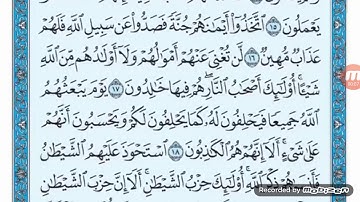 يَعْمَلُونَ ١٥ ٱتَّخَذُوٓا۟ أَيْمَـٰنَهُمْ جُنَّةً فَصَدُّوا۟ عَن سَبِيلِ ٱللَّهِ فَلَهُمْ
عَذَابٌ مُّهِينٌ ١٦ لَّن تُغْنِىَ عَنْهُمْ أَمْوَٰلُهُمْ وَلَآ أَوْلَـٰدُهُم مِّنَ ٱللَّهِ
شَيْـًٔا ۚ أُو۟لَـٰٓئِكَ أَصْحَـٰبُ ٱلنَّارِ ۖ هُمْ فِيهَا خَـٰلِدُونَ ١٧ يَوْمَ يَبْعَثُهُمُ
ٱللَّهُ جَمِيعًا فَيَحْلِفُونَ لَهُۥ كَمَا يَحْلِفُونَ لَكُمْ ۖ وَيَحْسَبُونَ أَنَّهُمْ
عَلَىٰ شَىْءٍ ۚ أَلَآ إِنَّهُمْ هُمُ ٱلْكَـٰذِبُونَ ١٨ ٱسْتَحْوَذَ عَلَيْهِمُ ٱلشَّيْطَـٰنُ
فَأَنسَىٰهُمْ ذِكْرَ ٱللَّهِ ۚ أُو۟لَـٰٓئِكَ حِزْبُ ٱلشَّيْطَـٰنِ ۚ أَلَآ إِنَّ حِزْبَ ٱلشَّيْطَـٰنِ
Recorded by